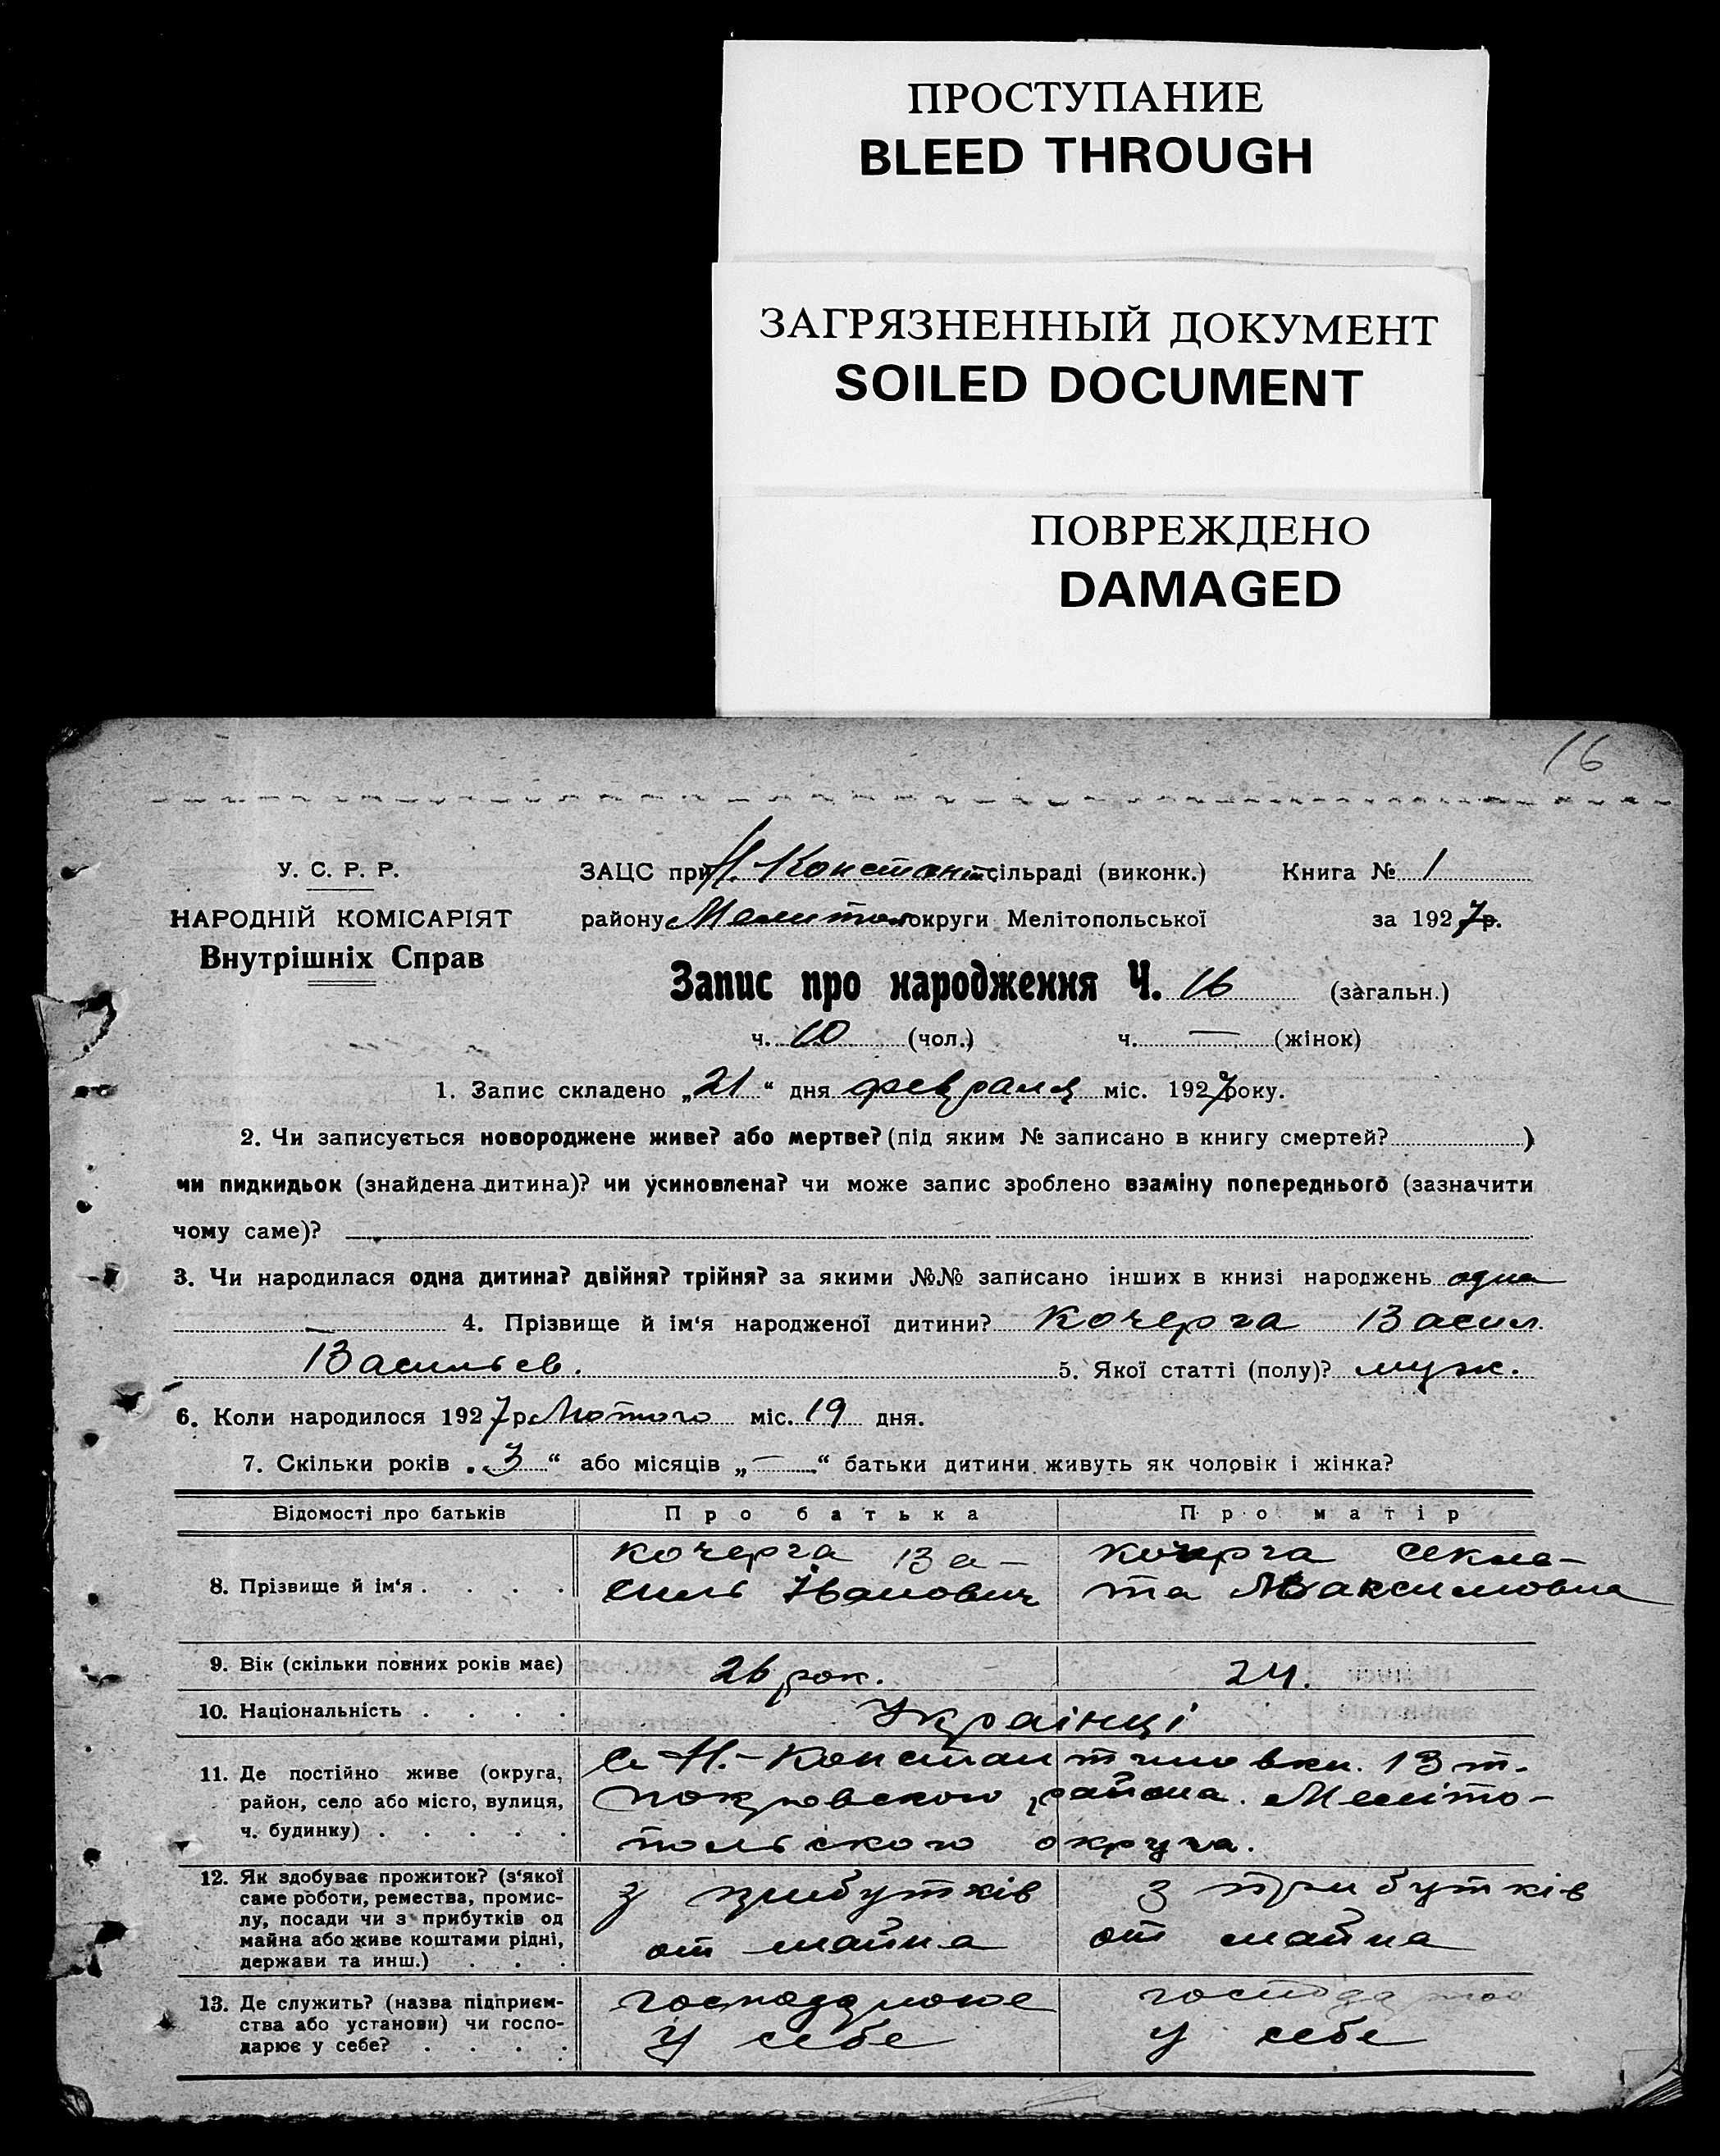 ПРОСТУПАНИЕ
BLEED THROUGH
ЗАГРЯЗНЕННЫЙ ДОКУМЕНТ
SOILED DOCUMENT
ПОВРЕЖДЕНО
DAMAGED
16
У. С. Р. Р.
НАРОДНІЙ КОМІСАРІЯТ
Внутрішніх Справ
ЗАЦС при Н. Константсільраді (виконк.) Книга № 1
району Мелитопокруги Мелітопольської за 1927р.
Запис про народження Ч. 16 (загальн.)
ч. 10 (чол.) ч. — (жінок)
1. Запис складено „21“ дня февраля міс. 1927року.
2. Чи записується новороджене живе? або мертве? (під яким № записано в книгу смертей? )
чи пидкидьок (знайдена дитина)? чи усиновлена? чи може запис зроблено взаміну попереднього (зазначити
чому саме)?
3. Чи народилася одна дитина? двійня? трійня? за якими №№ записано інших в книзі народжень одна
— 4. Прізвище й ім'я народженої дитини? Кочерга Васил
Васильев. 5. Якої статті (полу)? муж.
6. Коли народилося 1927р. Лютого міс. 19 дня.
7. Скільки років „3“ або місяців „—“ батьки дитини живуть як чоловік і жінка?
Відомості про батьків Про батька Про матір
8. Прізвище й ім'я . . . .
Кочерга Ва-
силь Іванович
Кочерга Секле-
та Максимовна
9. Вік (скільки повних років має) 26 рок. 24.
10. Національність . . . . Украінці
11. Де постійно живе (округа,
район, село або місто, вулиця,
ч. будинку) . . . . .
с. Н.-Константиновки. Вт.
покровского района. Меліто-
польского округа.
12. Як здобуває прожиток? (з'якої
саме роботи, ремества, промис-
лу, посади чи з прибутків од
майна або живе коштами рідні,
держави та инш.) . . .
з прибутків
от майна
з прибутків
от майна
13. Де служить? (назва підприєм-
ства або установи) чи госпо-
дарює у себе? . . . .
у себе
у себе